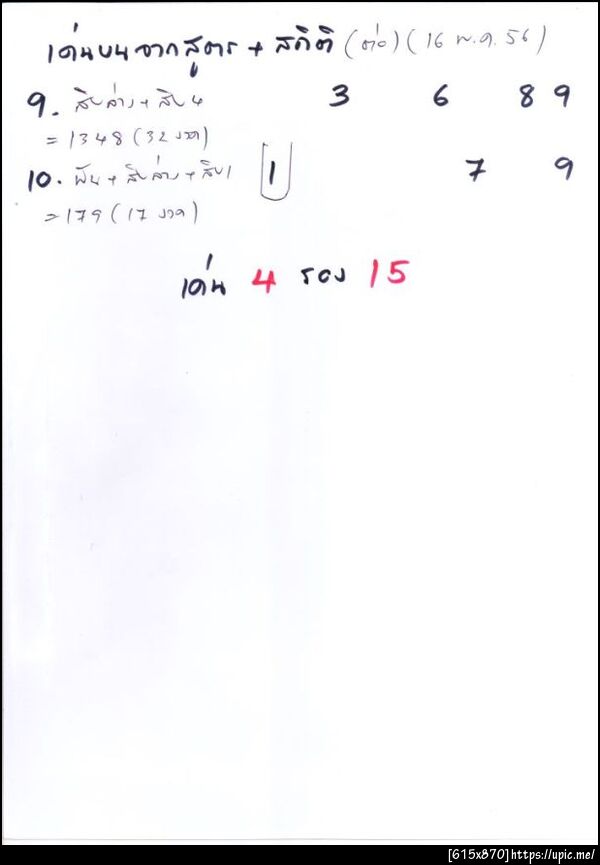 เด่นบนจากสูตร + สถิติ (ต่อ) (16 พ.ค. 56)
9. สิบล่าง + สิบ 4 3 6 8 9
= 1348 (32 งวด)
10. พัน + สิบล่าง + สิบ 1 1 7 9
= 179 (17 งวด)
เด่น 4 รอง 15
[615x870]https://upic.me/